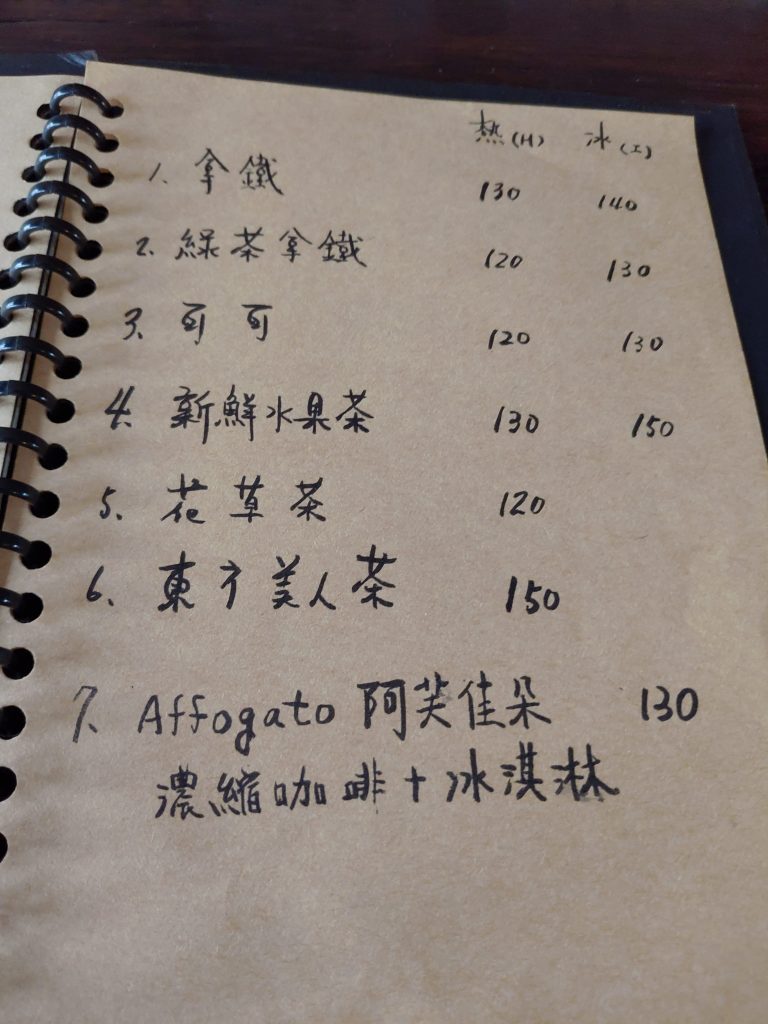 熱(H) 冰(I)
1. 拿鐵 130 140
2. 綠茶拿鐵 120 130
3. 可可 120 130
4. 新鮮水果茶 130 150
5. 花草茶 120
6. 東方美人茶 150
7. Affogato 阿芙佳朵 130
濃縮咖啡+冰淇淋